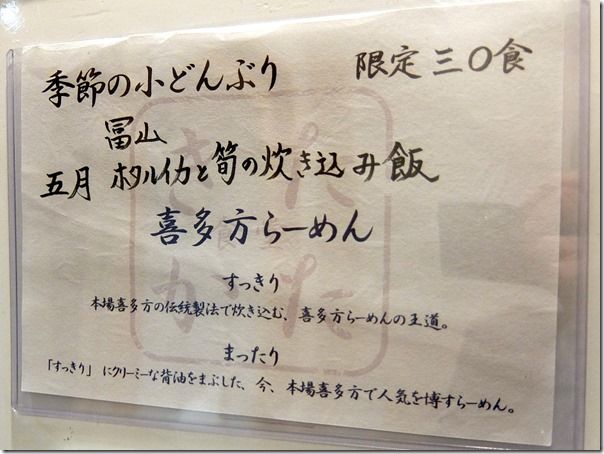 季節の小どんぶり　限定三〇食
冨山
五月 ホタルイカと筍の炊き込み飯
喜多方らーめん
すっきり
本場喜多方の伝統製法で炊き込む、喜多方らーめんの王道。
まったり
「すっきり」にクリーミーな背油をまぶした、今、本場喜多方で人気を博すらーめん。